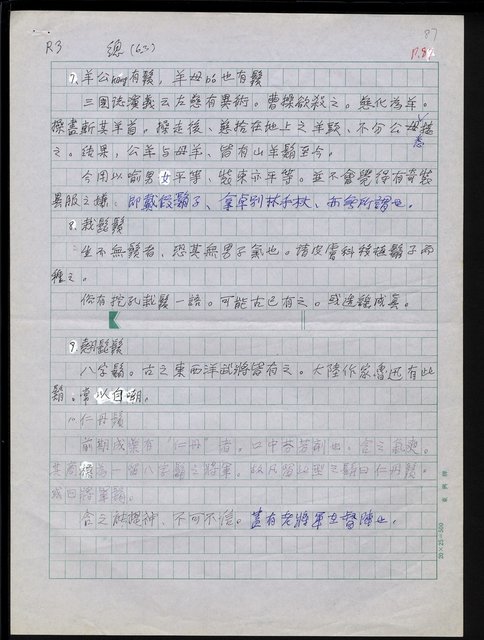 87
R3 總(63) P.87
7.羊公kang有鬚，羊母bó也有鬚
三國誌演義云左慈有異術。曹操欲殺之。慈化為羊。
操盡斬其羊首。操走後、慈拾在地上之羊頭、不分公母接
之。結果，公羊与母羊、皆有山羊鬍至今。
今用以喻男女平等、裝束亦平等。並不會覺得有奇裝
異服之嫌；即戴假鬍子、
8.栽鬍鬚
生而無鬚者、恐其無男子氣也。請皮膚科移植鬍子而
種之。
俗有挖孔栽鬚一語。可能古已有之。或造謠成真。
9.翹鬍鬚
八字鬍。古之東西洋武將皆有之。大陸作家魯迅有此
鬍。常以自嘲。
仁丹鬚
前期成藥有"仁丹"者。口中芬芳劑也。含之氣爽。
其商標為一留八字鬍之將軍。故凡留此型之鬍曰仁丹鬚。
或曰將軍鬍。
含之能提神、不可不信。蓋有老將軍在督陣也。
20×25=500